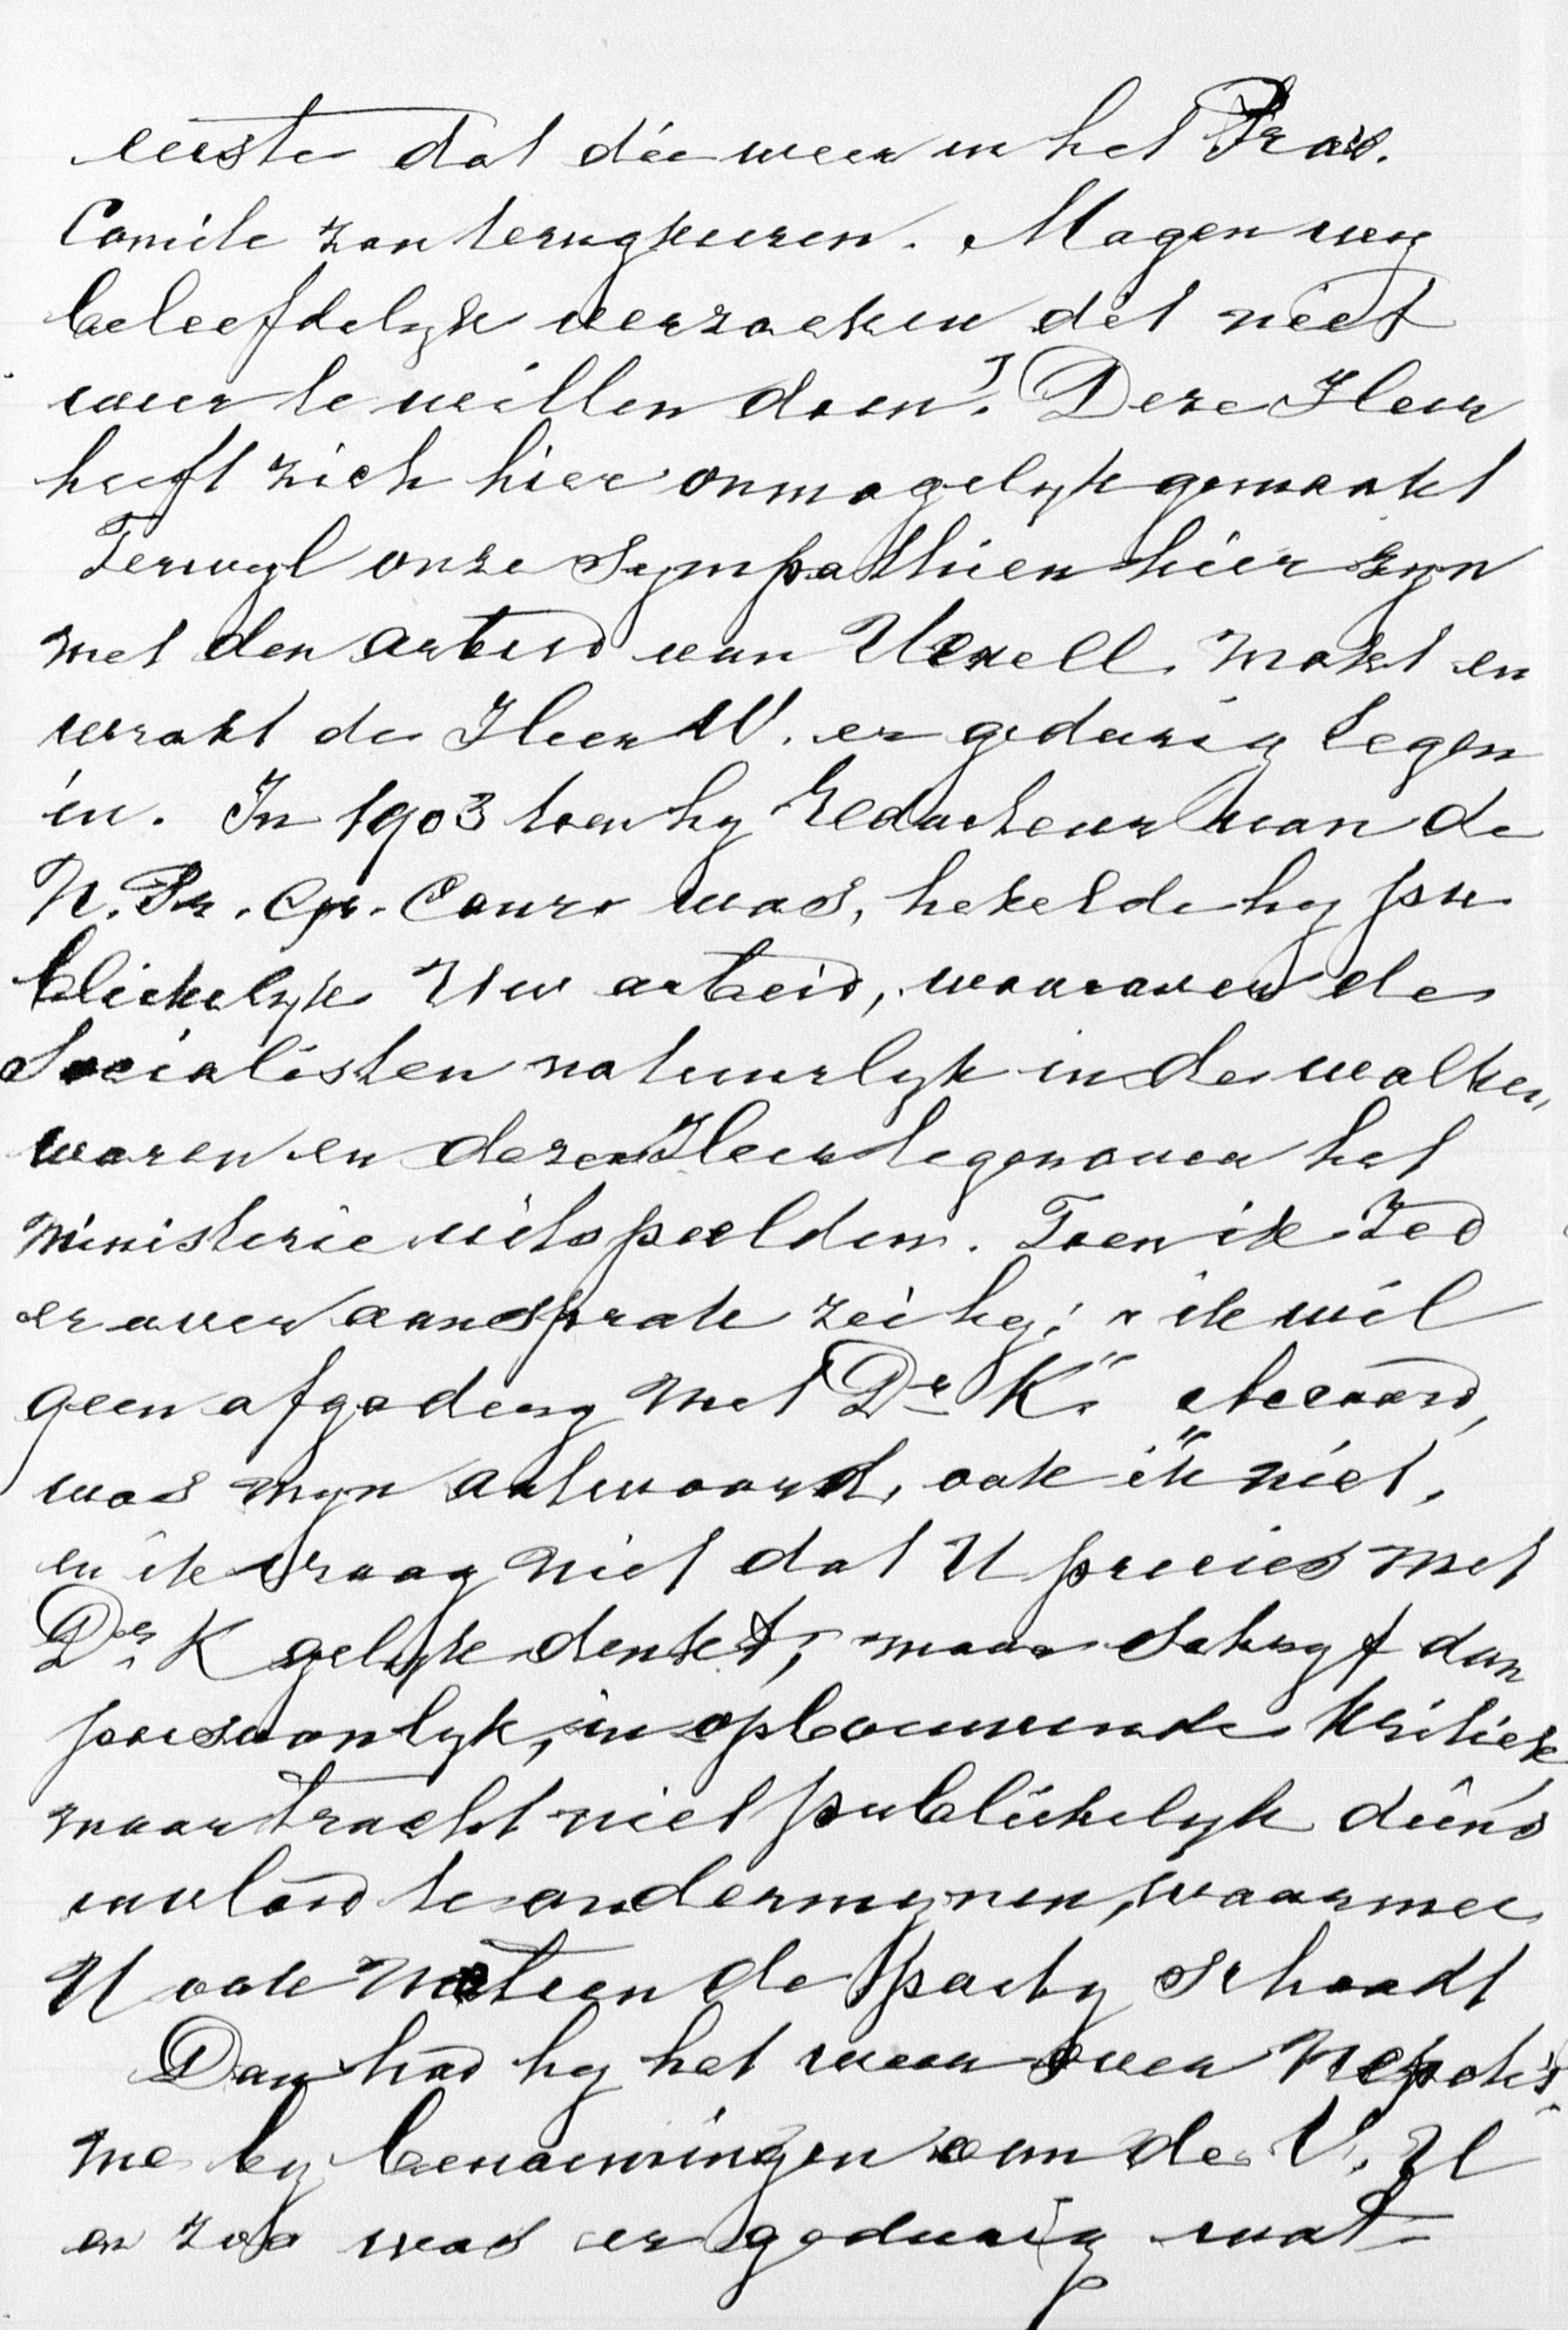 eerste dat die weer in het Prov.
Comite zou terugkeeren. Mogen wy
beleefdelyk verzoeken dit niet
weer te willen doen? Deze Heer
heeft zich hier onmogelyk gemaakt
Terwyl onze Sympathien hier zyn
met den arbeid van UExell. mokt en
wrokt de Heer W. er gedurig tegen
in. In 1903 toen hy Redacteur van de
N. Pr. Gr. Cour. was, hekelde hy pu
blickelyk Uw arbeid, waarover de
Socialisten natuurlyk in de wolken
waren en dezen Heer tegenover het
Ministerie uitspeelden. Toen ik ZEd
er over aansprak zei hy: "ik wil
geen afgodery met Dr K." Accoord,
was myn antwoord, ook ik niet,
en ik vraag niet dat U precies met
Dr. K gelyk denkt, maar schryf dan
persoonlyk, in opbouwende kritiek
maar tracht niet publickelyk diens
invloed te ondermynen, waarmee
U ook meteen de party schaadt
Dan had hy het weer over Nepotis
me by benoemingen aan de V. U
en zoo was er gedurig wat